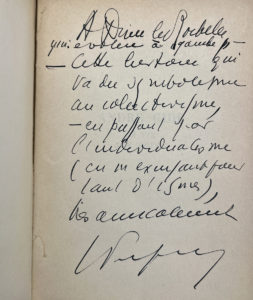 A Drieu la Rochelle
qui évolue à
— Cette histoire qui
va du symbolisme
au collectivisme,
— en passant par
l'individualisme
(en m'excusant pour
tant d'ismes),
très amicalement